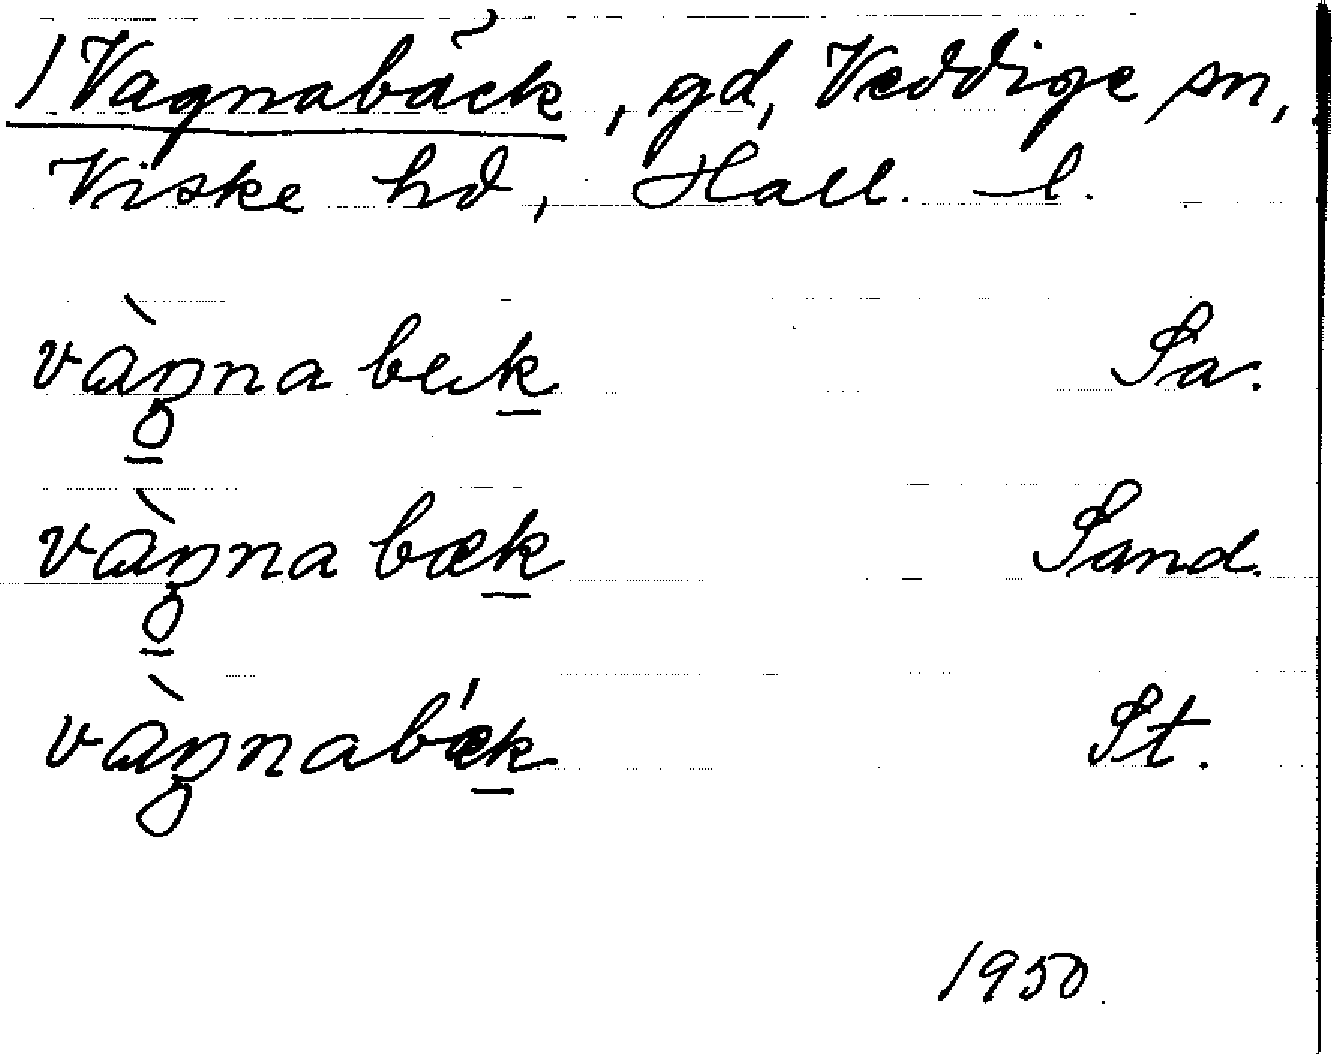 1 Vagnabäck, gd, Veddige sn,
Viske hd, Hall. l.
vàŋna bek Sa.
vàŋna bæk Sand.
vàŋnabǽk St.
1950.